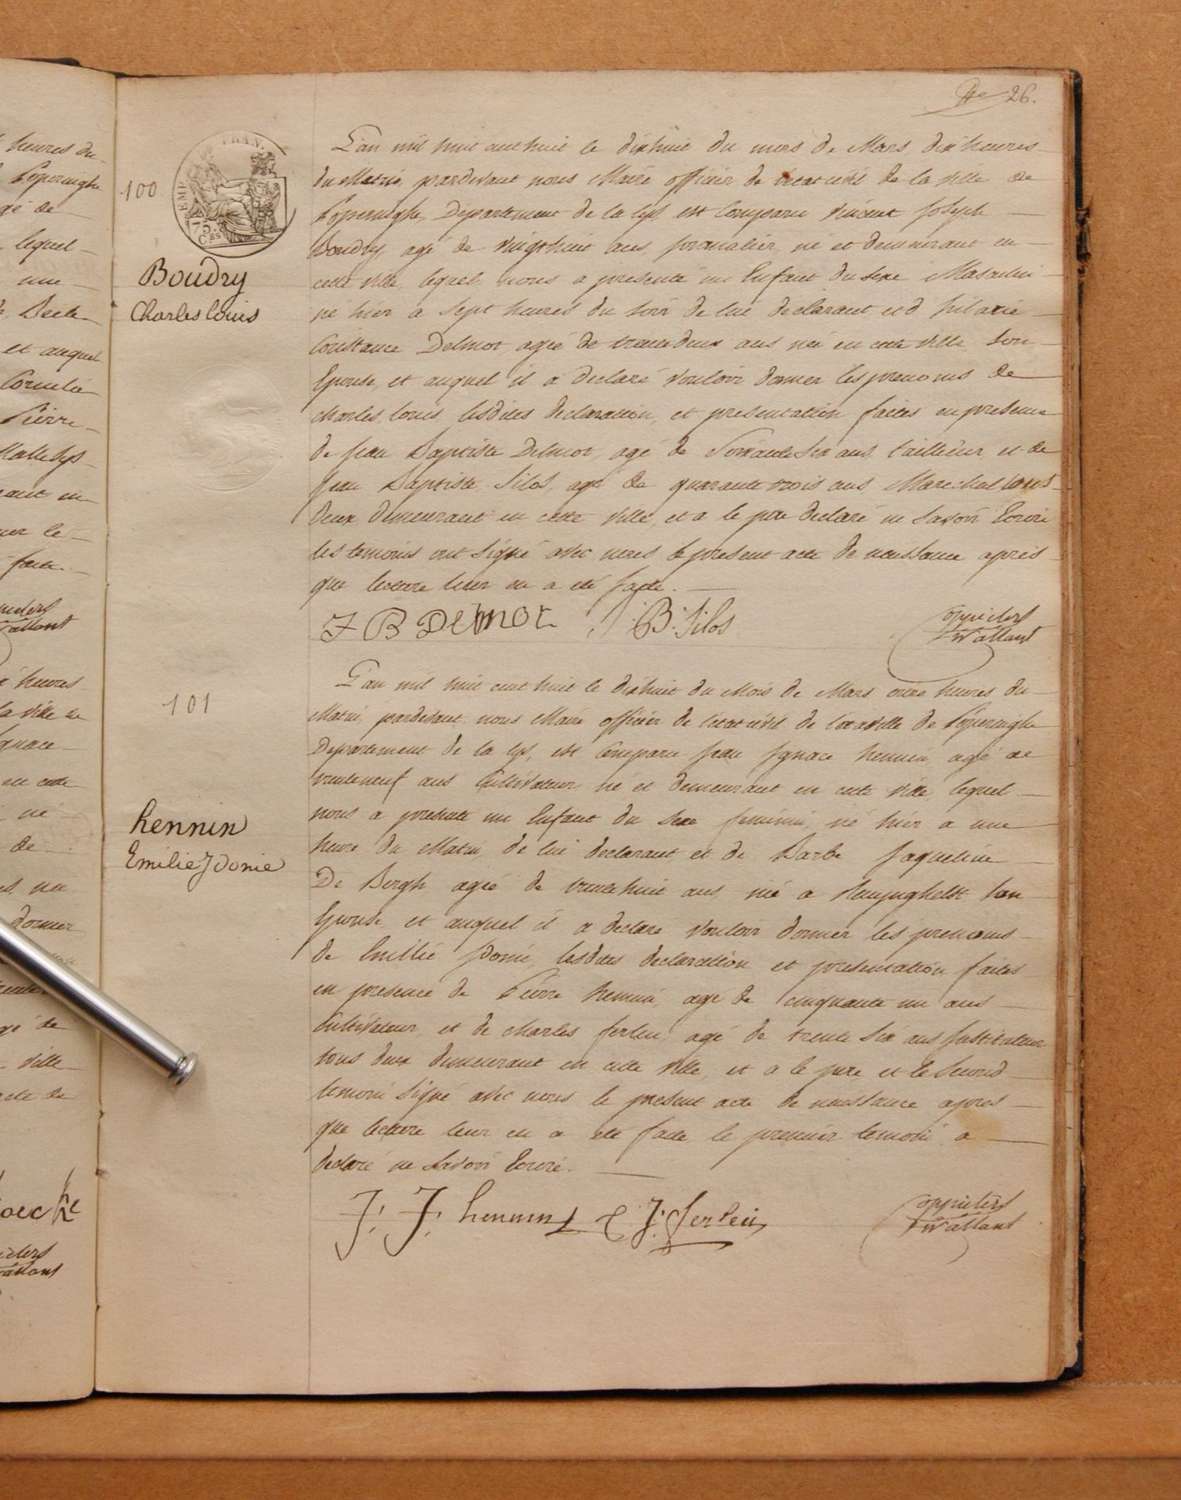 26.
100
EMP. FRAN.
75
Boudry
Charles Louis
L'an mil huit cent huit le dixhuit du mois de Mars dix heures
du Matin, pardevant nous Maire officier de l'etat civil de la ville de
Poperinghe, Departement de la Lys, est Comparu Vincent Joseph
Boudry, agé de vingthuit ans, né et demeurant en
cette ville lequel nous a presenté un Enfant du sexe Masculin
né hier à sept heures du soir de lui declarant et d' hilarie
Constance Delmot agée de trentedeux ans née en cette ville Son
Epouse, et auquel il a declaré vouloir donner les prenoms de
Charles Louis, lesdites declaration, et presentation faites en presence
de Jean Baptiste Delmot, agé de Soixante Six ans tailleur, et de
Jean Baptiste Silos, agé de quarante trois ans Marechal tous
deux demeurant en cette ville, et a le pere declaré ne Savoir Ecrire
les temoins ont Signé avec nous le present acte de naissance après
que lecture leur en a été faite.
J B Delmot J: B: Silos
101
hennin
Emilie Jdonie
L'an mil huit cent huit le dixhuit du Mois de Mars onze heures du
Matin, pardevant nous Maire officier de l'etat civil de la ville de Poperinghe
Departement de la Lys, est Comparu Jean Ignace hennin, agé de
trenteneuf ans Cultivateur né et demeurant en cette ville, lequel
nous a presenté un Enfant du Sexe feminin, né hier à une
heure du Matin, de lui declarant et de Barbe Jaqueline
De Bergh agée de trentehuit ans née à Reninghelst Son
Epouse, et auquel il a declaré vouloir donner les prenoms
de Emilie Jdonie, lesdites declaration et presentation faites
en presence de Pierre hennin, agé de cinquante un ans
Cultivateur, et de Charles ferlein agé de trente Six ans Instituteur
tous deux demeurant en cette ville, et a le pere et le Second
temoin Signé avec nous le present acte de naissance après
que lecture leur en a été faite le premier temoin a
declaré ne Savoir Ecrire.
J: J: hennin C J: ferlein